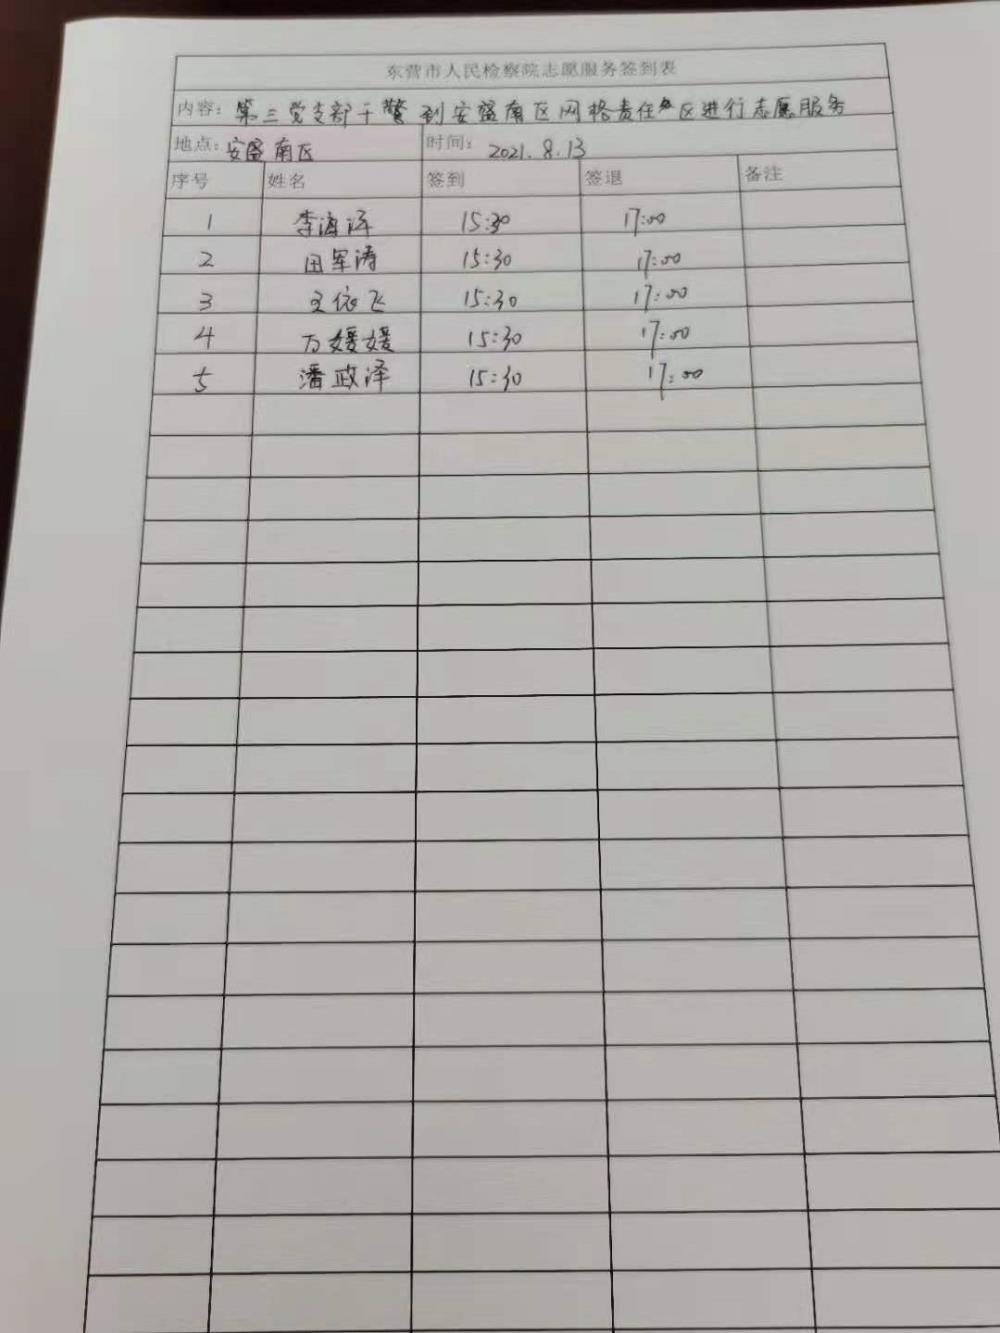 东营市人民检察院志愿服务签到表
内容：第三党支部干警到安盛南区网格责任区进行志愿服务
地点：安盛南区 时间：2021.8.13
序号 姓名 签到 签退 备注
1 李海洋 15:30 17:00
2 田军涛 15:30 17:00
3 王依飞 15:30 17:00
4 万媛媛 15:30 17:00
5 潘政泽 15:30 17:00